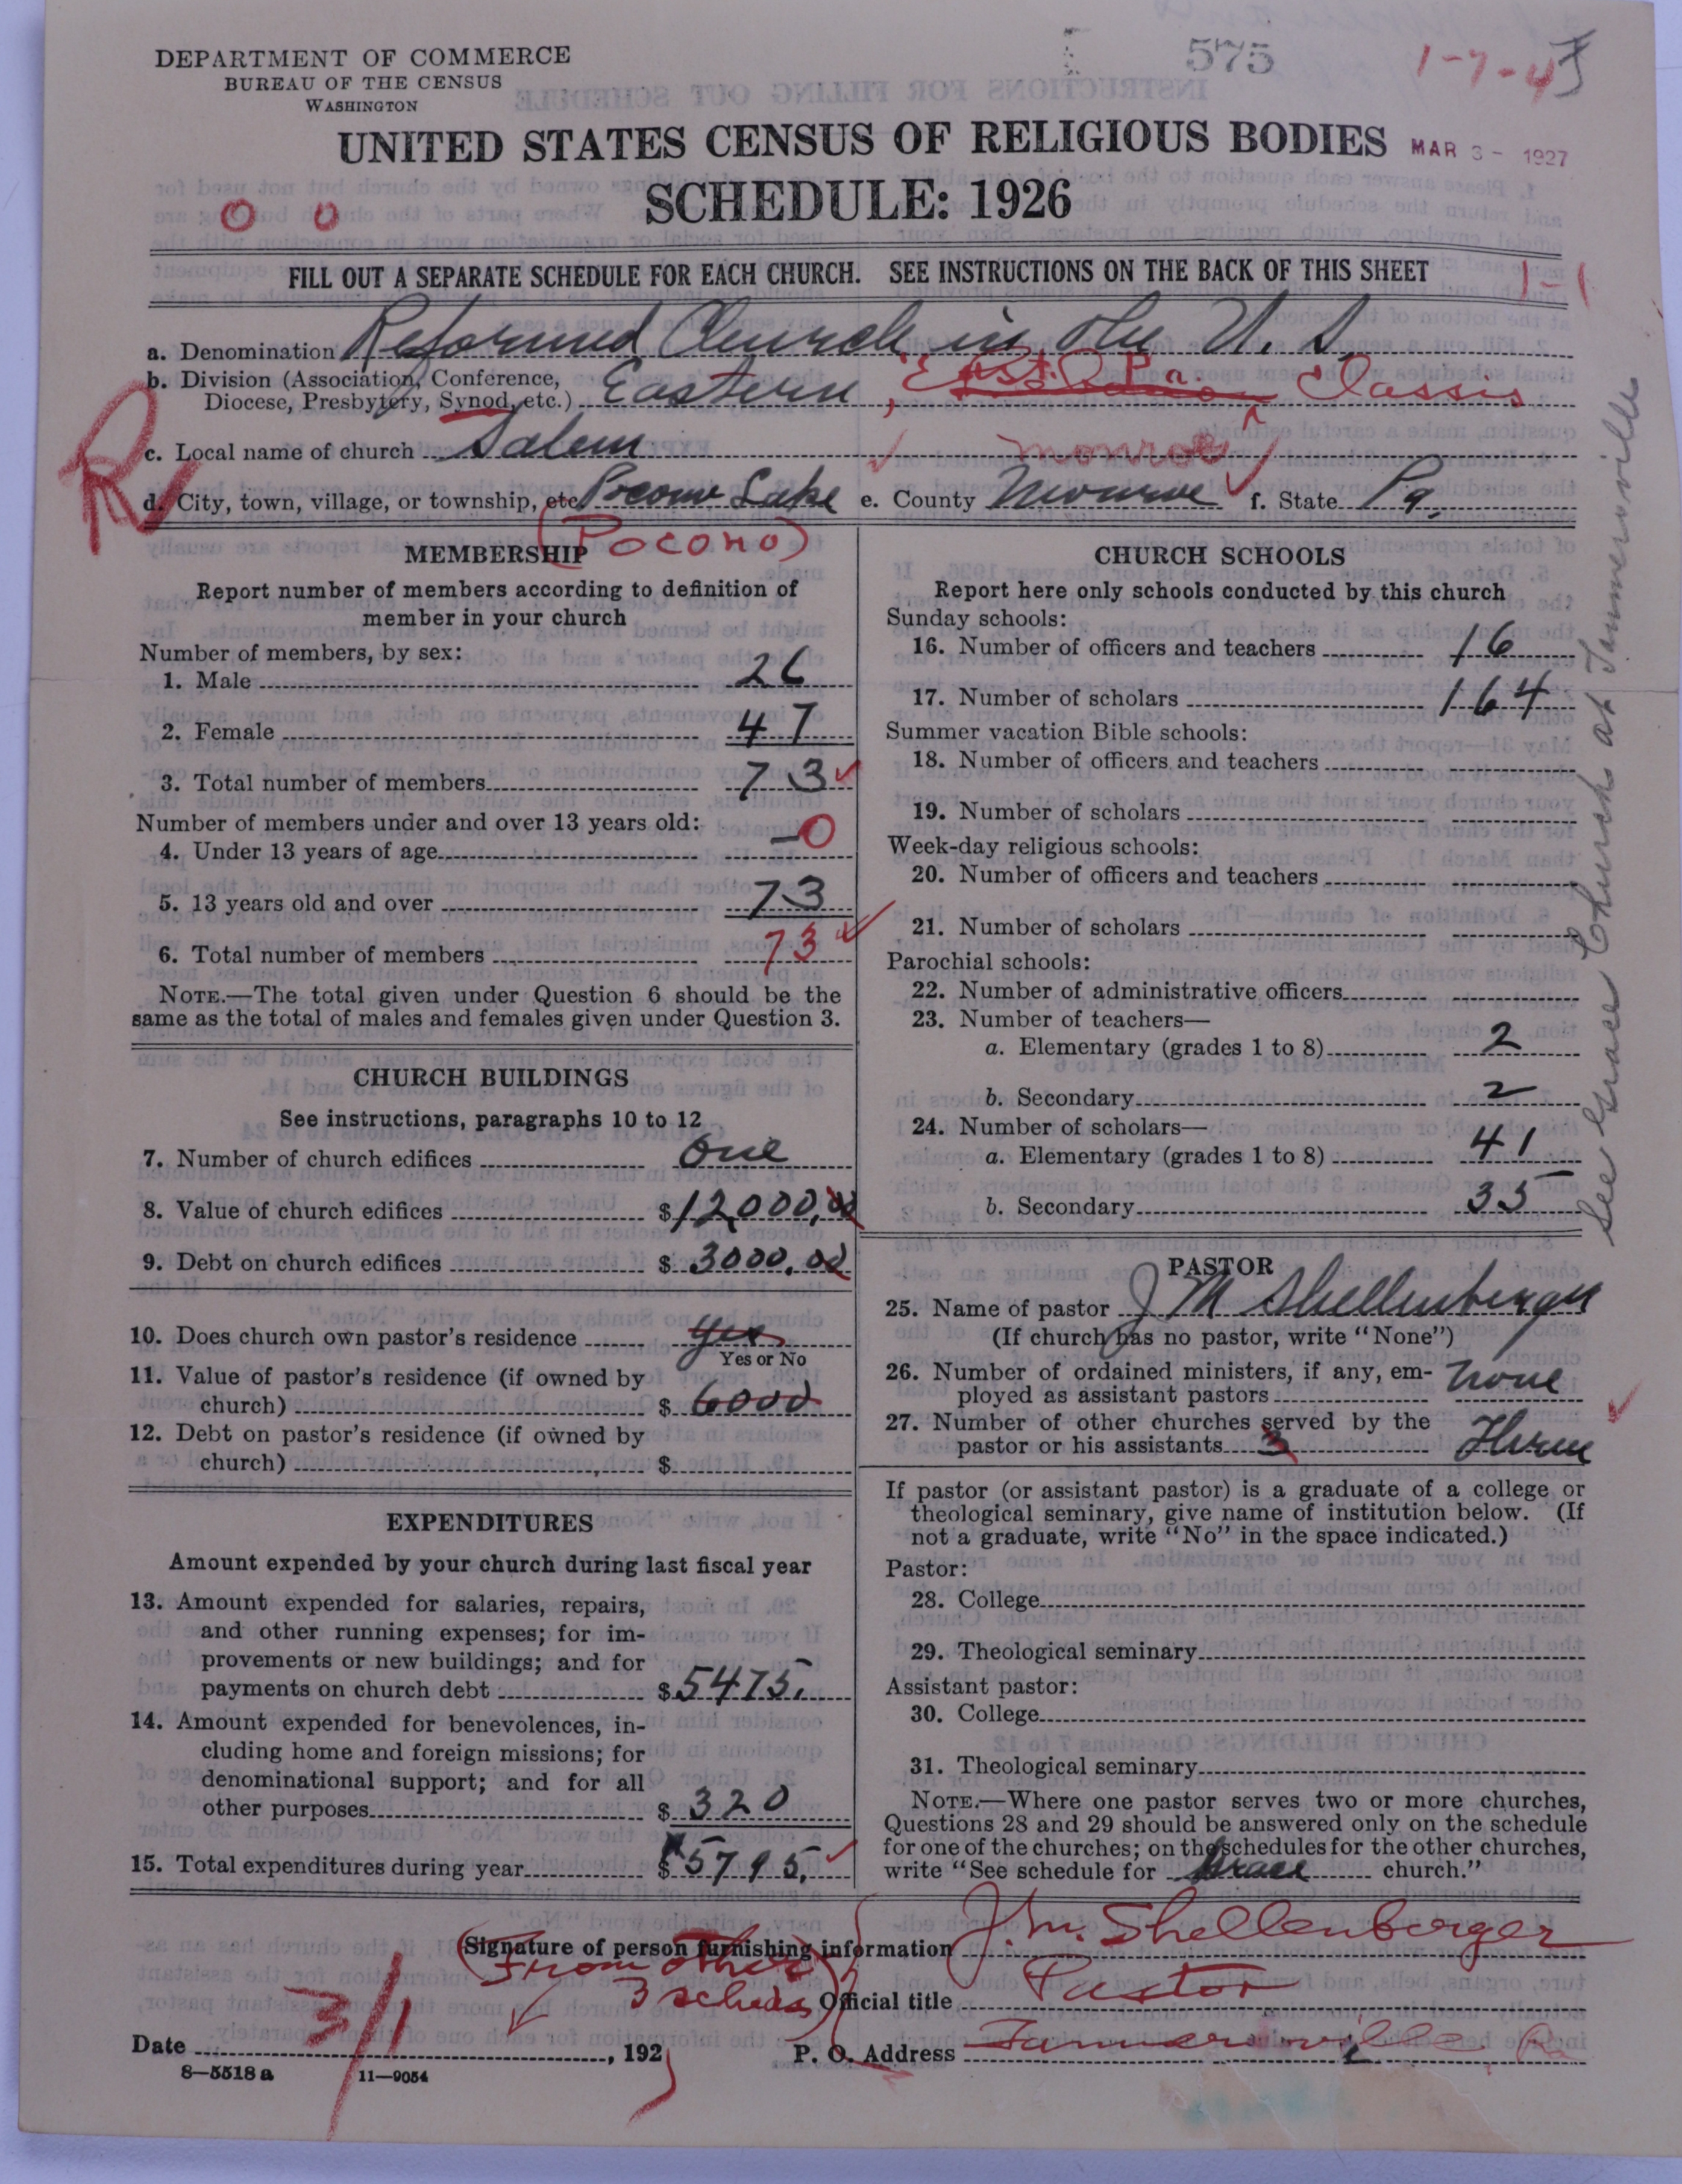 DEPARTMENT OF COMMERCE
BUREAU OF THE CENSUS
WASHINGTON
575
1-7-45
UNITED STATES CENSUS OF RELIGIOUS BODIES
MAR 3 - 1927
SCHEDULE: 1926
0 0
FILL OUT A SEPARATE SCHEDULE FOR EACH CHURCH. SEE INSTRUCTIONS ON THE BACK OF THIS SHEET
1-1
a. Denomination Reformed Church in the U. S.
b. Division (Association, Conference, Diocese, Presbytery, Synod, etc.) Eastern, East Pa. Classis
c. Local name of church Salem
monroe
d. City, town, village, or township, etc Pocono Lake e. County Monroe f. State Pa.
(Pocono)
MEMBERSHIP
Report number of members according to definition of
member in your church
Number of members, by sex:
1. Male 26
2. Female 47
3. Total number of members 73
Number of members under and over 13 years old:
4. Under 13 years of age -0
5. 13 years old and over 73
6. Total number of members 73
NOTE.—The total given under Question 6 should be the
same as the total of males and females given under Question 3.
CHURCH BUILDINGS
See instructions, paragraphs 10 to 12
7. Number of church edifices One
8. Value of church edifices $12000.00
9. Debt on church edifices $ 3000.00
10. Does church own pastor's residence yes
Yes or No
11. Value of pastor's residence (if owned by
church) $ 6000
12. Debt on pastor's residence (if owned by
church) $
EXPENDITURES
Amount expended by your church during last fiscal year
13. Amount expended for salaries, repairs,
and other running expenses; for im-
provements or new buildings; and for
payments on church debt $ 5475.
14. Amount expended for benevolences, in-
cluding home and foreign missions; for
denominational support; and for all
other purposes $ 320
15. Total expenditures during year $ 5795.
CHURCH SCHOOLS
Report here only schools conducted by this church
Sunday schools:
16. Number of officers and teachers 16
17. Number of scholars 164
Summer vacation Bible schools:
18. Number of officers and teachers
19. Number of scholars
Week-day religious schools:
20. Number of officers and teachers
21. Number of scholars
Parochial schools:
22. Number of administrative officers
23. Number of teachers—
a. Elementary (grades 1 to 8) 2
b. Secondary 2
24. Number of scholars—
a. Elementary (grades 1 to 8) 41
b. Secondary 35
PASTOR
25. Name of pastor J M Shellenberger
(If church has no pastor, write "None")
26. Number of ordained ministers, if any, em-
ployed as assistant pastors none
27. Number of other churches served by the
pastor or his assistants 3 Three
If pastor (or assistant pastor) is a graduate of a college or
theological seminary, give name of institution below. (If
not a graduate, write "No" in the space indicated.)
Pastor:
28. College
29. Theological seminary
Assistant pastor:
30. College
31. Theological seminary
NOTE.—Where one pastor serves two or more churches,
Questions 28 and 29 should be answered only on the schedule
for one of the churches; on the schedules for the other churches,
write "See schedule for Grace church."
See Grace Church at Tannersville
Signature of person furnishing information J. M. Shellenberger
(From other
3 scheds)
Official title Pastor
Date 3/1, 1927
P. O. Address Tannersville Pa
8—5518 a
11—9054